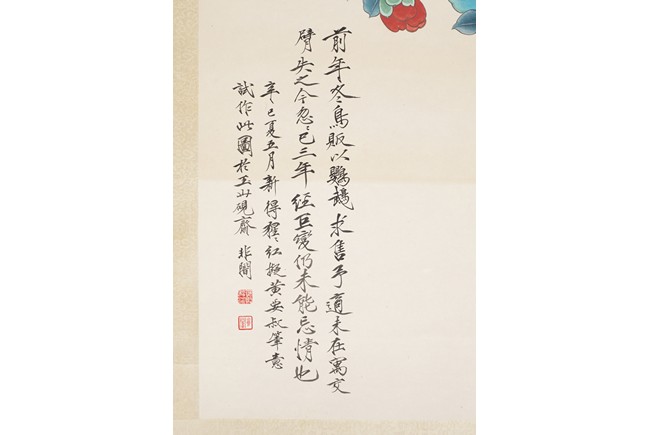 前年冬鳥販以鸚鵡求售予適未在寓交
臂失之今忽忽已三年經巨變仍未能忘情也
辛巳夏五月新得猩猩紅擬黃要叔筆意
試作此圖於玉山硯齋 非闇